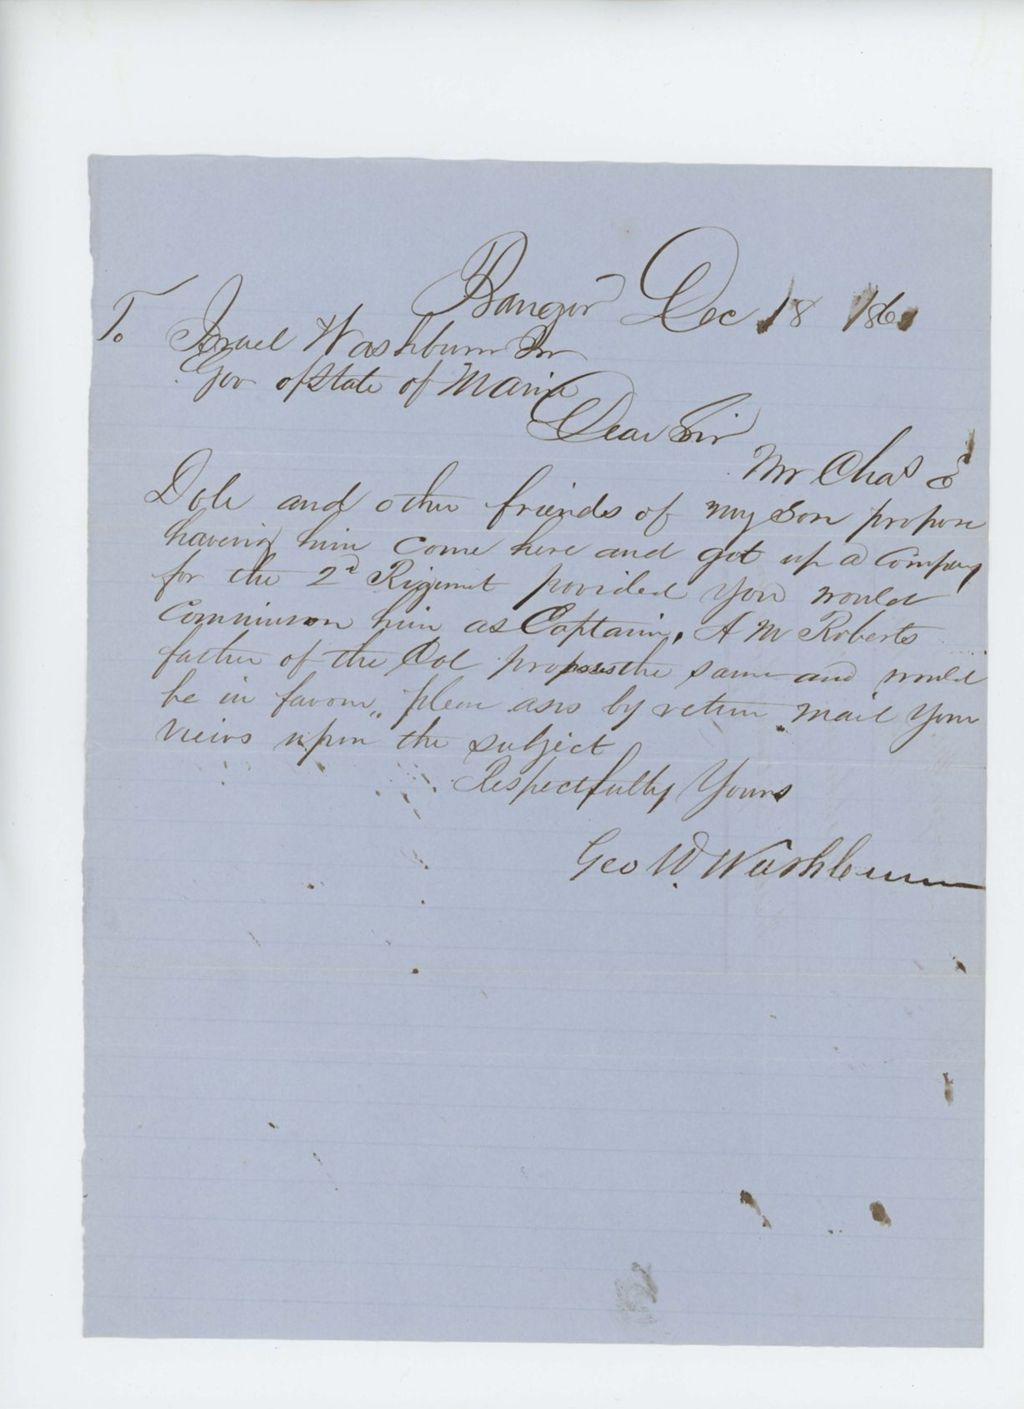 Bangor Dec 18 1861
To Israel Washburn Jr
Gov of State of Maine
Dear Sir
Mr Chas E
Dole and other friends of my son propose
having him come here and get up a Company
for the 2d Regiment provided you would
Commission him as Captain, A M Roberts
father of the Col proposes the same and would
be in favour,, please ans by return mail your
views upon the subject
Respectfully Yours
Geo W. Washburn